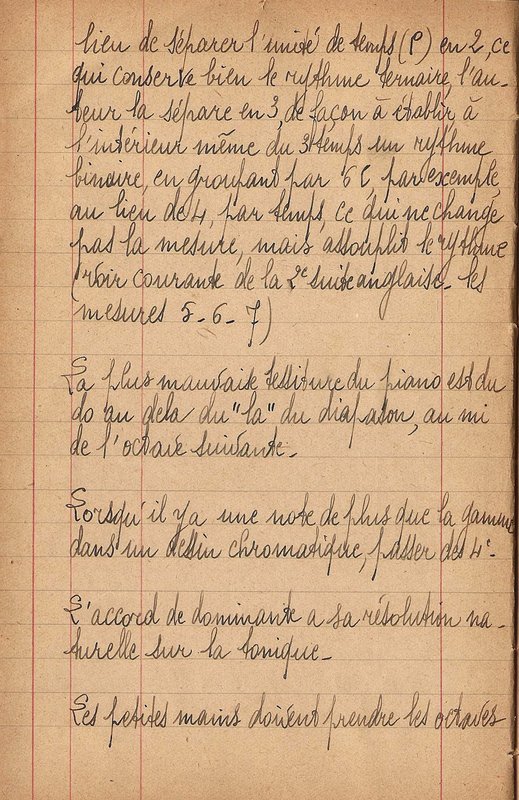 lieu de séparer l'unité de temps (P) en 2, ce
qui conserve bien le rythme ternaire, l'au-
teur la sépare en 3, de façon à établir, à
l'intérieur même du 3 temps un rythme
binaire, en groupant par 6 C, par exemple,
au lieu de 4, par temps, ce qui ne change
pas la mesure, mais assouplit le rythme
(voir courante de la 2e suite anglaise - les
mesures 5-6-7)
La plus mauvaise tessiture du piano est du
do au delà du "la" du diapason, au mi
de l'octave suivante -
Lorsqu'il y a une note de plus que la gamme
dans un dessin chromatique, passer des 4e -
L'accord de dominante a sa résolution na-
turelle sur la tonique -
Les petites mains doivent prendre les octaves